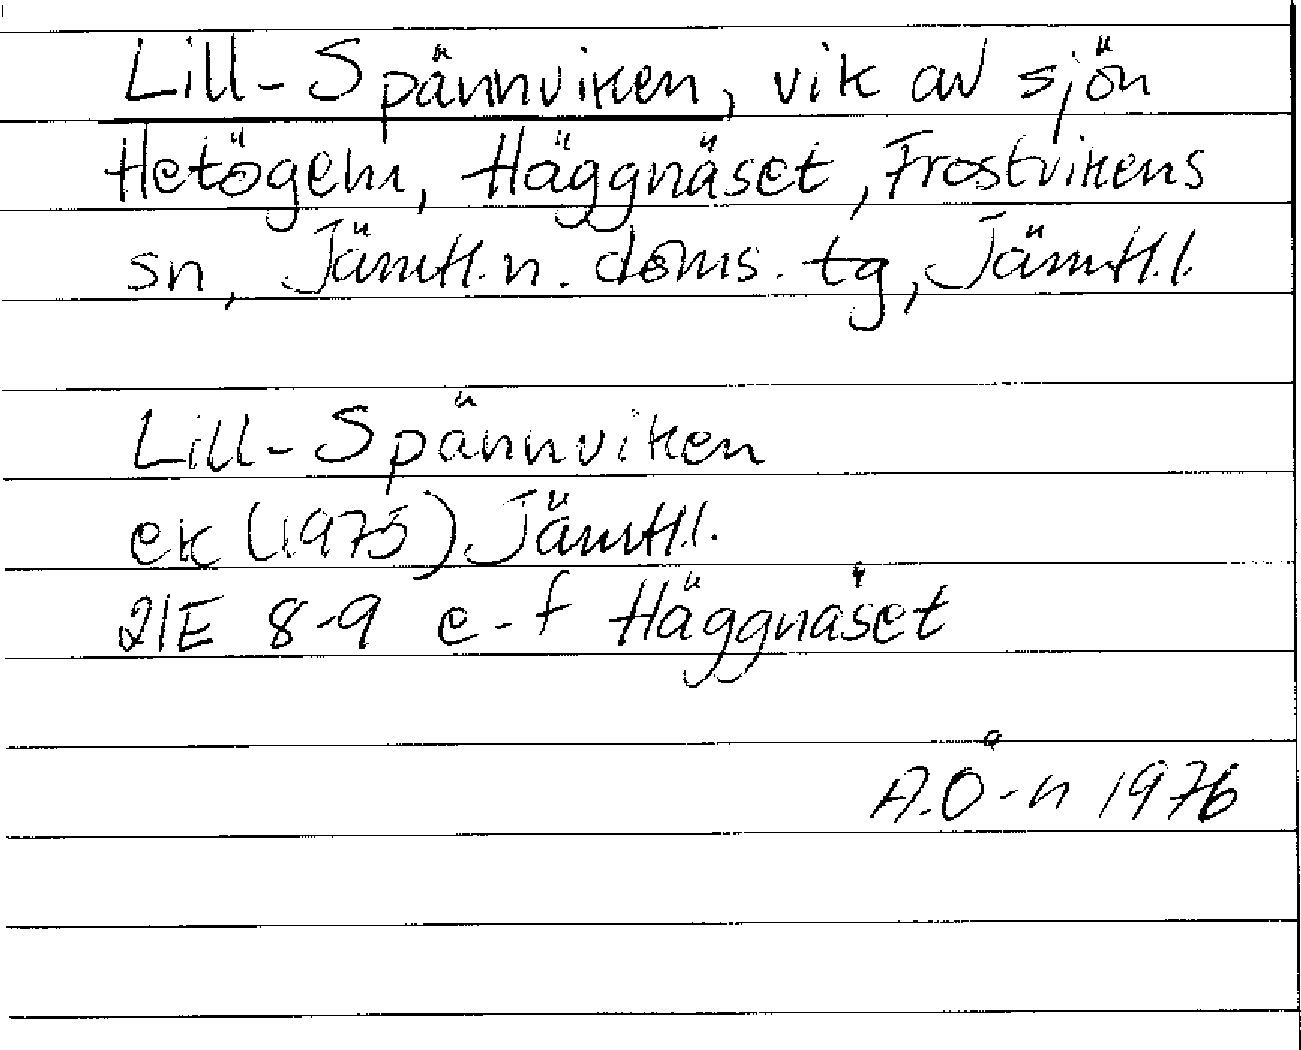 Lill-Spännviken, vik av sjön
Hetögeln, Häggnäset, Frostvikens
sn, Jämtl.n. doms. tg, Jämtl.l.
Lill-Spännviken
ek (1975) Jämtl.l.
21E 8-9 e-f Häggnäset
A.Ö-n 1976